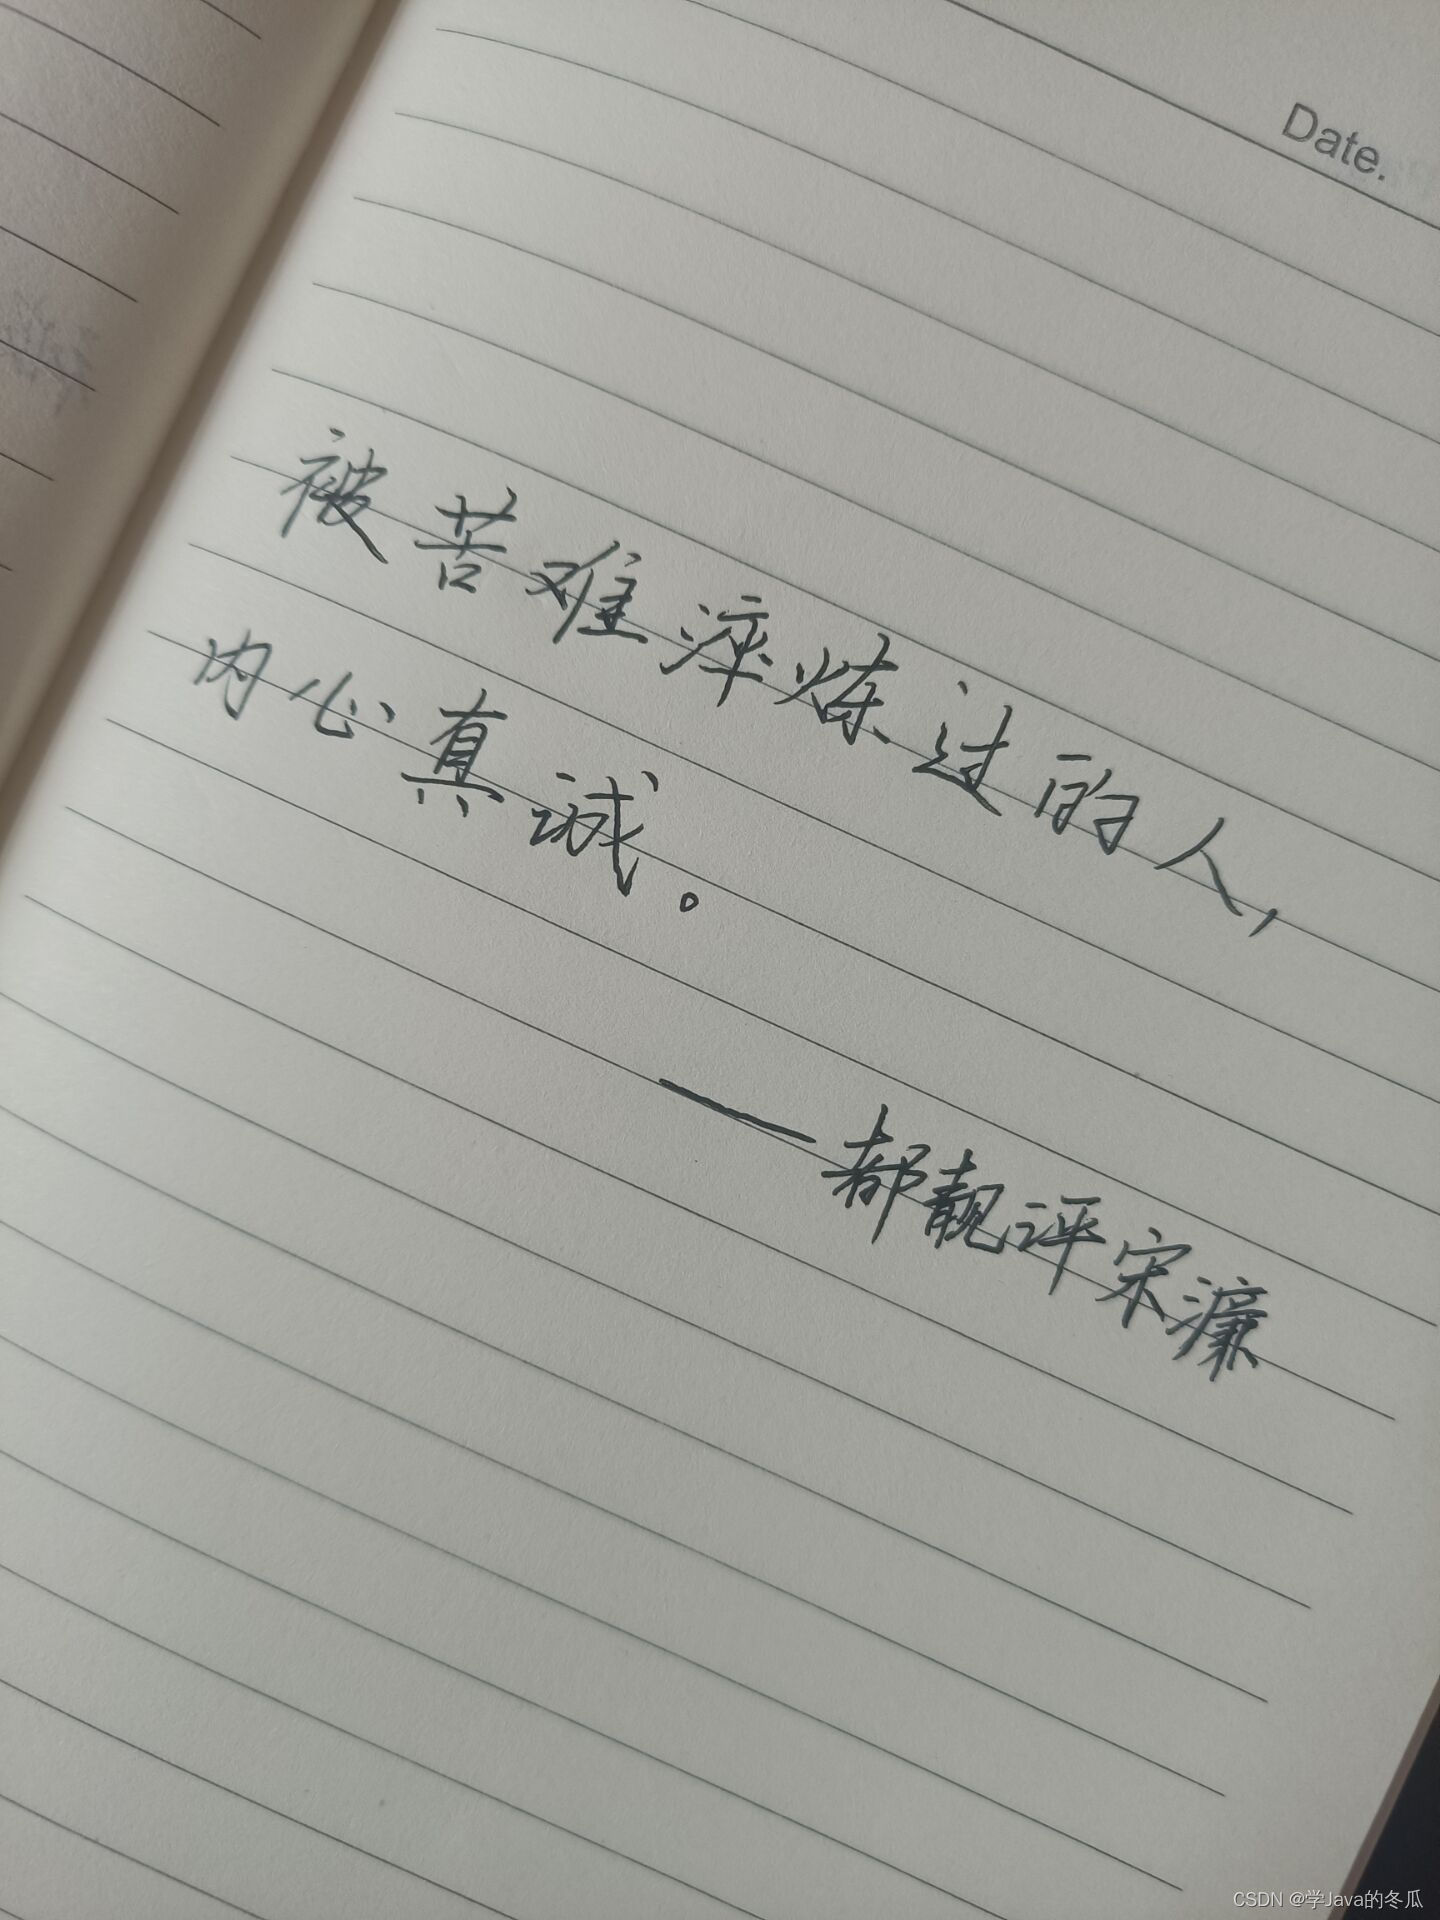 Date.
被苦难滓炼过的人，
内心真诚。
——都靓评宋濂
CSDN @学Java的冬瓜